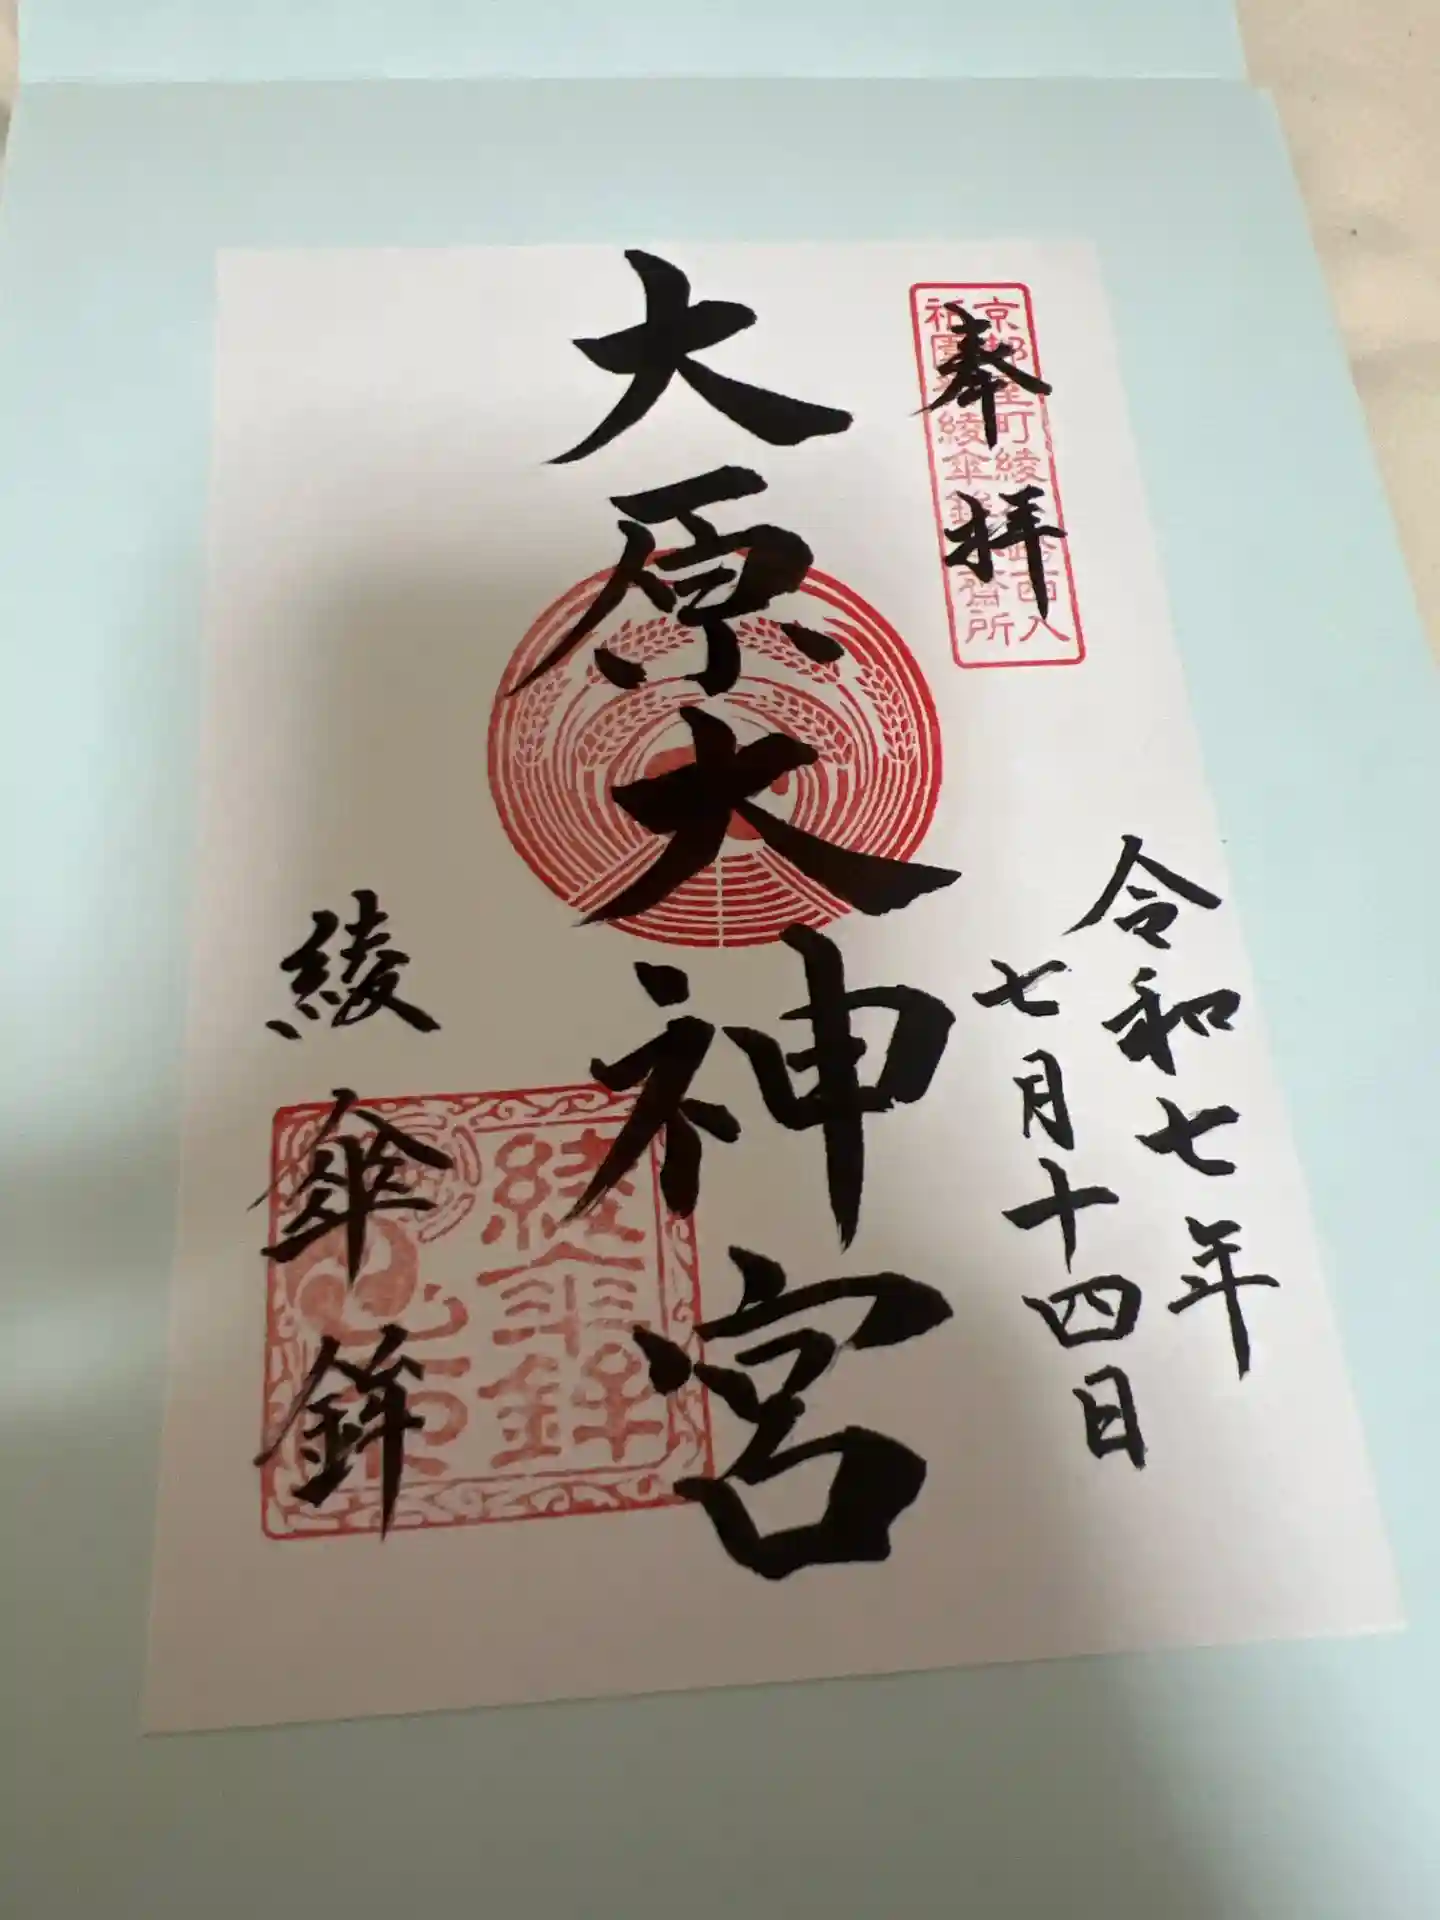 奉拝
京都室町綾小路西入
祇園祭綾傘鉾斎所
令和七年
七月十四日
大原大神宮
綾傘鉾
綾傘鉾